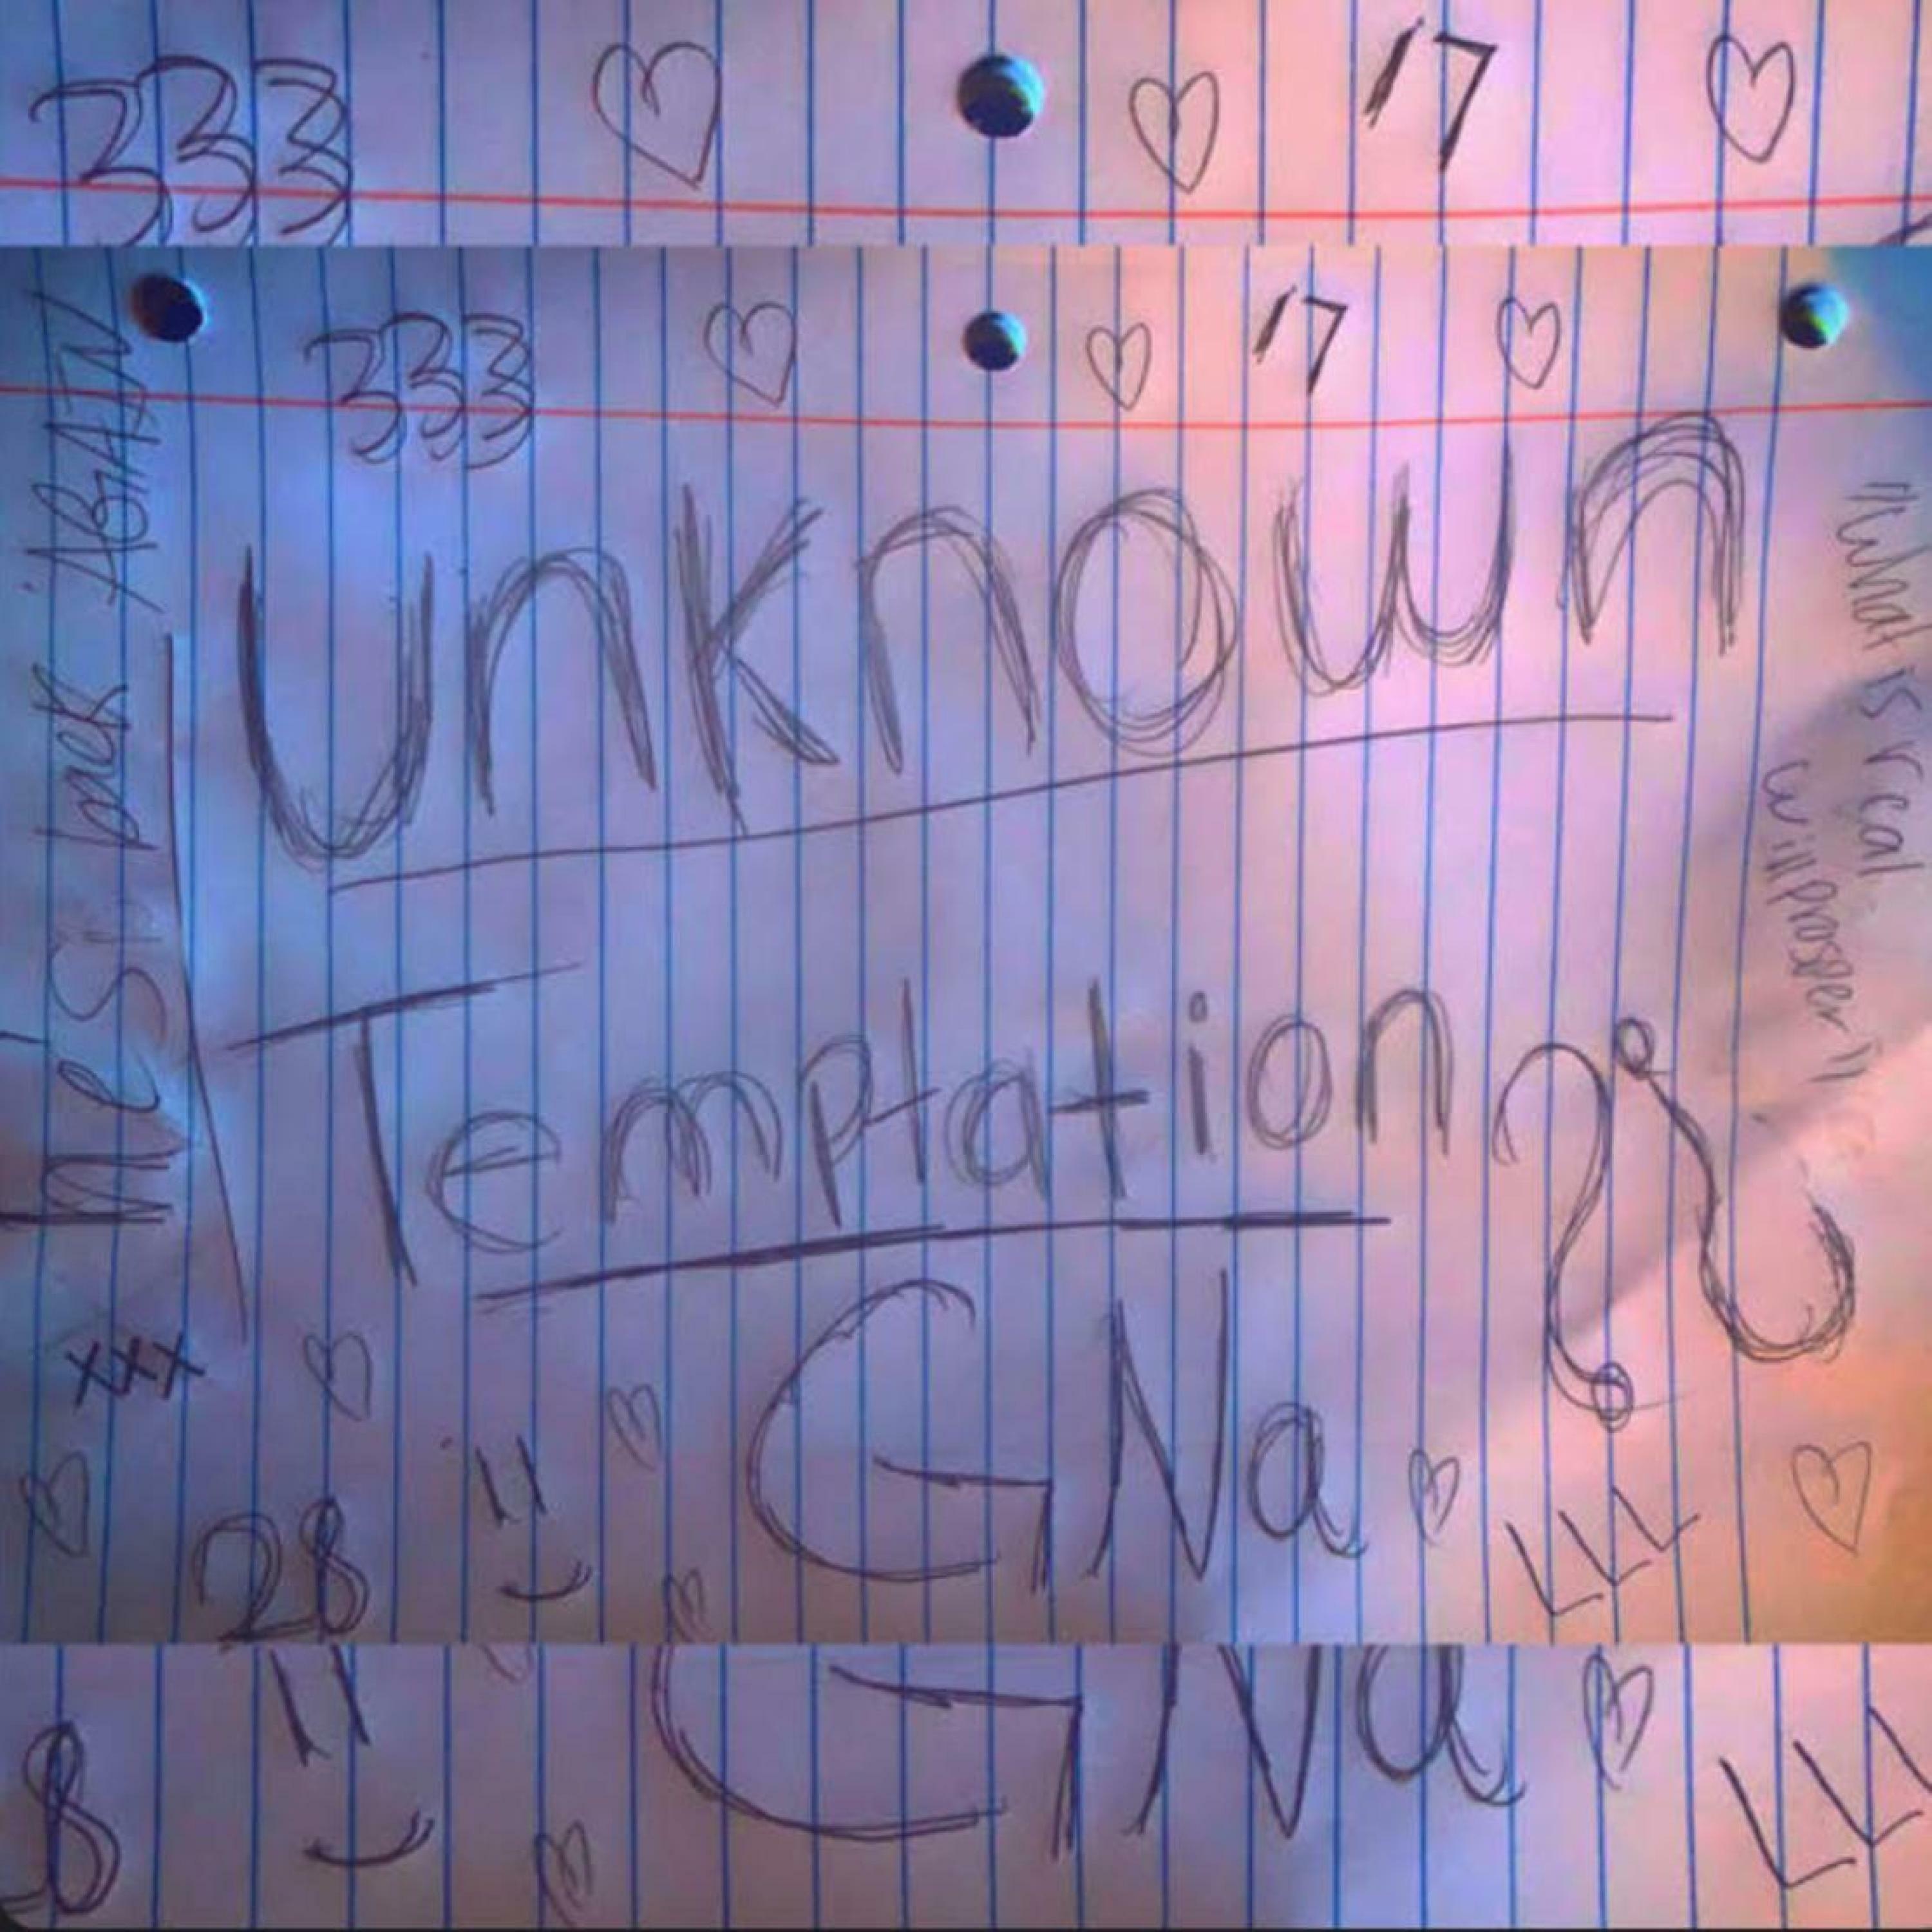 333 17
333 17
he's back AGAIN
unknown
"What is real
will prosper"
Temptation ??
xxx
GNa
28 :)
LLL
8 :)
GNa
LLL